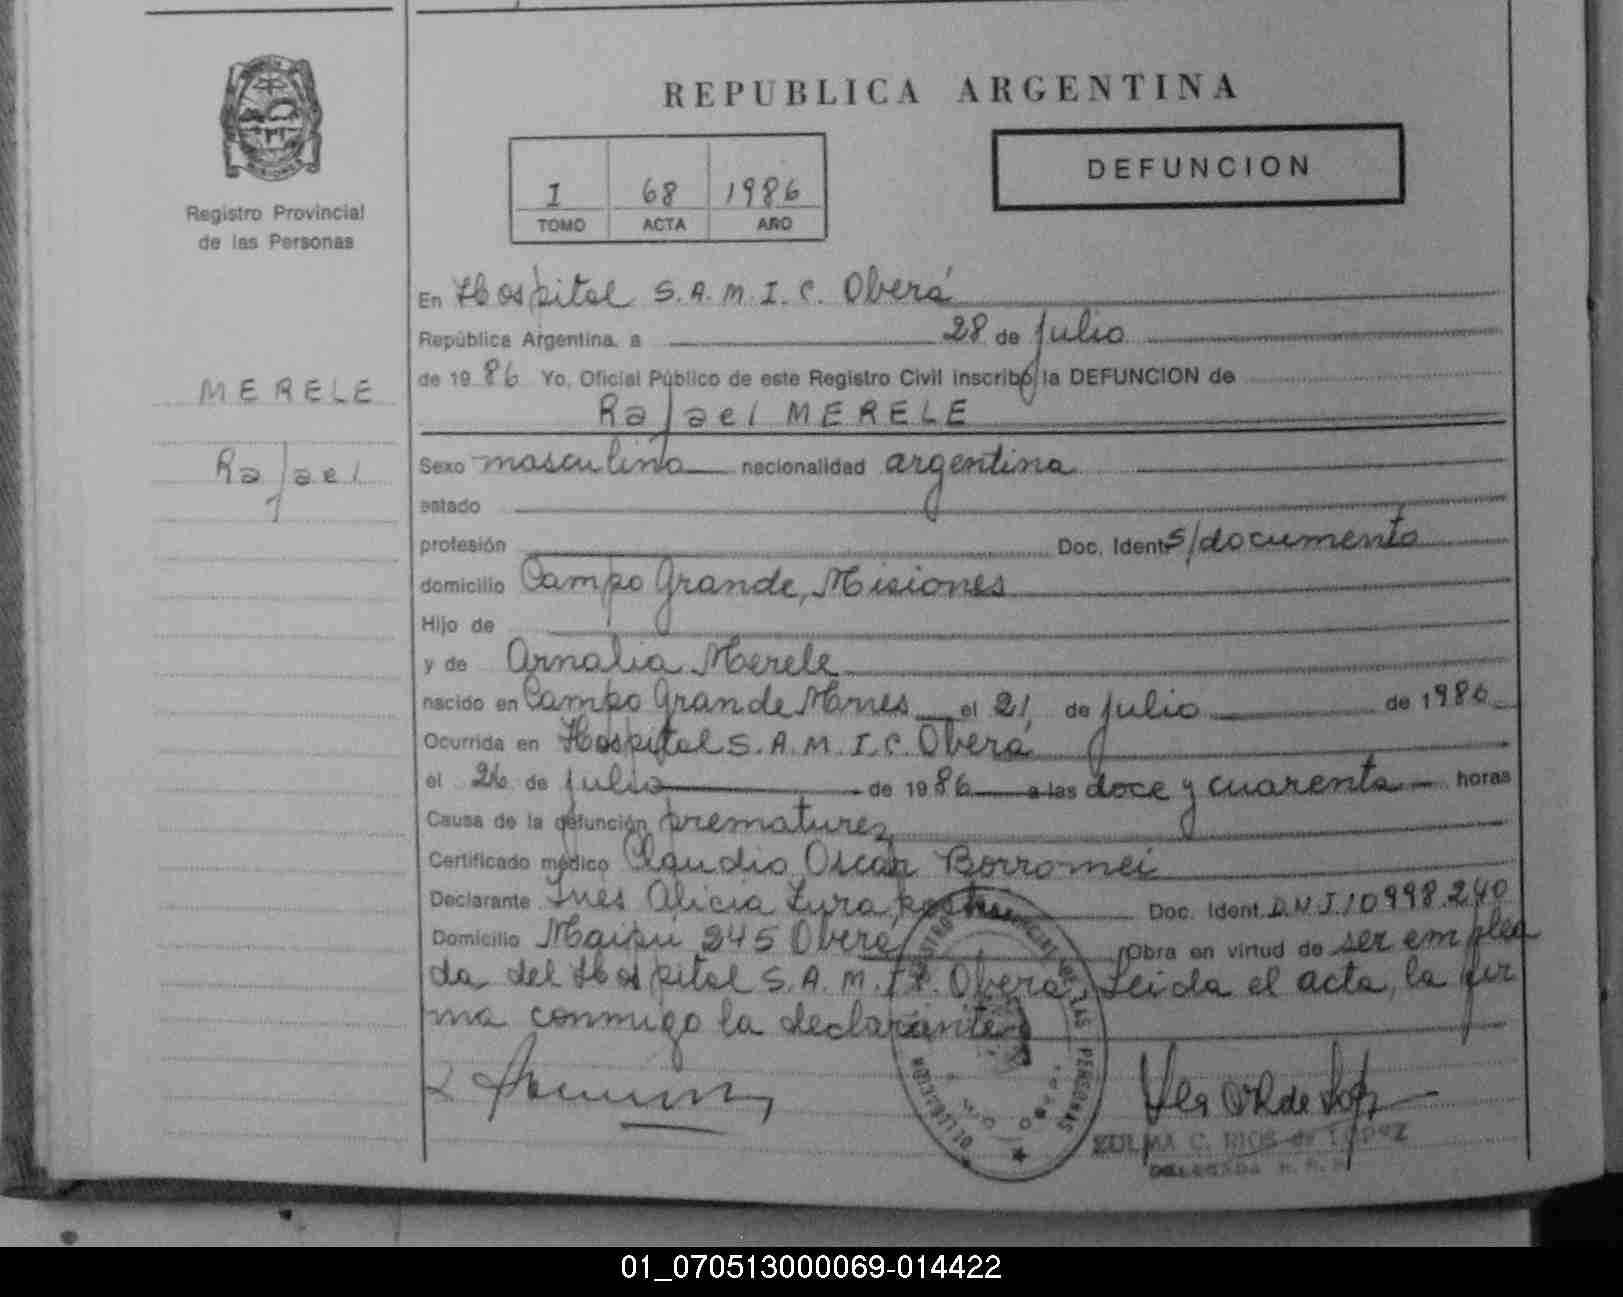 REPUBLICA ARGENTINA
DEFUNCION
I 68 1986
TOMO ACTA AÑO
Registro Provincial
de las Personas
MERELE
Rafael
En Hospital S.A.M.I.C. Oberá
República Argentina, a 28 de julio
de 1986 Yo, Oficial Público de este Registro Civil inscribo la DEFUNCION de
Rafael MERELE
Sexo masculino nacionalidad argentina
estado
profesión Doc. Ident. s/documento
domicilio Campo Grande, Misiones
Hijo de
y de Arnalia Merele
nacido en Campo Grande Mnes el 21 de julio de 1986
Ocurrida en Hospital S.A.M.I.C. Oberá
el 26 de julio de 1986 a las doce y cuarenta horas
Causa de la defunción prematurez
Certificado médico Claudio Oscar Borromei
Declarante Ines Alicia Doc. Ident. D.N.I. 10998.240
Domicilio Maipu 245 Oberá Obra en virtud de ser emplea
da del Hospital S.A.M.I.C. Oberá. Leida el acta, la fir
ma conmigo la declarante
DELEGACION
REGISTRO PROVINCIAL DE LAS PERSONAS
ZULMA C. RIOS de LOPEZ
01_070513000069-014422